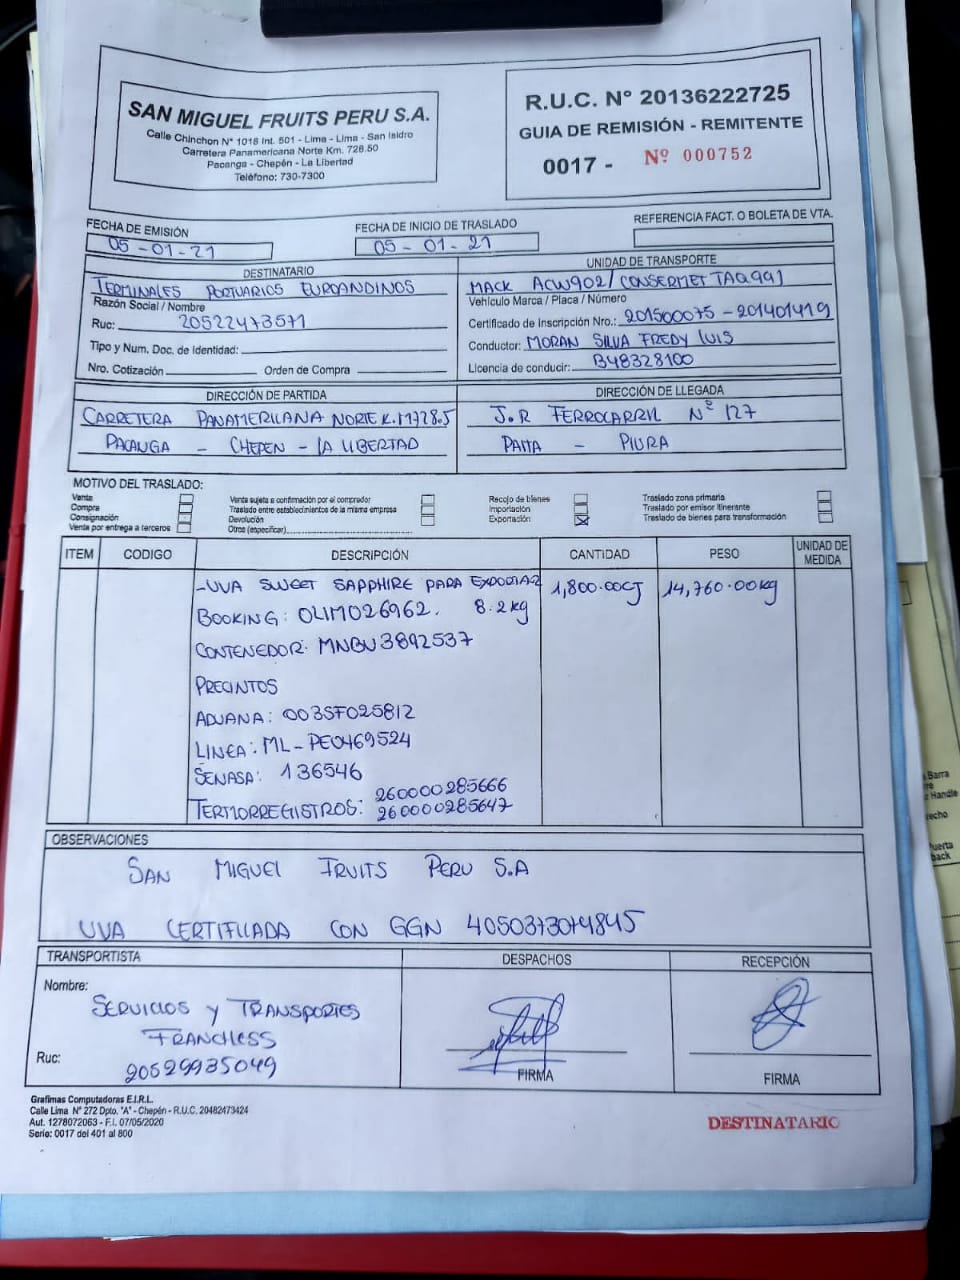 SAN MIGUEL FRUITS PERU S.A.
Calle Chinchon N° 1018 Int. 501 - Lima - Lima - San Isidro
Carretera Panamericana Norte Km. 728.50
Pacanga - Chepén - La Libertad
Teléfono: 730-7300
R.U.C. N° 20136222725
GUIA DE REMISIÓN - REMITENTE
0017 - Nº 000752
FECHA DE EMISIÓN
05-01-21
FECHA DE INICIO DE TRASLADO
05-01-21
REFERENCIA FACT. O BOLETA DE VTA.
DESTINATARIO
TERMINALES PORTUARIOS EUROANDINOS
Razón Social / Nombre
Ruc: 20522473571
Tipo y Num. Doc. de Identidad:
Nro. Cotización Orden de Compra
UNIDAD DE TRANSPORTE
MACK ACW902/CONSERMET TAQ991
Vehículo Marca / Placa / Número
Certificado de Inscripción Nro.: 201500075-201401419
Conductor: MORAN SILVA FREDY LUIS
Licencia de conducir: B48328100
DIRECCIÓN DE PARTIDA
CARRETERA PANAMERICANA NORTE K.M728.5
PACANGA - CHEPEN - LA LIBERTAD
DIRECCIÓN DE LLEGADA
J.R FERROCARRIL N° 127
PAITA - PIURA
MOTIVO DEL TRASLADO:
Venta
Compra
Consignación
Venta por entrega a terceros
Venta sujeta a confirmación por el comprador
Traslado entre establecimientos de la misma empresa
Devolución
Otros (especificar)
Recojo de bienes
Importación
Exportación
Traslado zona primaria
Traslado por emisor itinerante
Traslado de bienes para transformación
ITEM CODIGO DESCRIPCIÓN CANTIDAD PESO UNIDAD DE MEDIDA
-UVA SWEET SAPPHIRE PARA 1,800.00CJ 14,760.00kg
BOOKING: OLIM026962. 8.2kg
CONTENEDOR: MNBU3892537
PRECINTOS
ADUANA: 003SF025812
LINEA: ML-PE0469524
SENASA: 136546
TERMORREGISTROS: 260000285666
260000285647
OBSERVACIONES
SAN MIGUEL FRUITS PERU S.A
UVA CERTIFICADA CON GGN 4050373074845
TRANSPORTISTA
Nombre:
SERVICIOS Y TRANSPORTES
FRANCHESS
Ruc: 20529935049
DESPACHOS
FIRMA
RECEPCIÓN
FIRMA
Grafimas Computadoras E.I.R.L.
Calle Lima N° 272 Dpto. "A" - Chepén - R.U.C. 20482473424
Aut. 1278072063 - F.I. 07/05/2020
Serie: 0017 del 401 al 800
DESTINATARIO
Barra
Handle
back